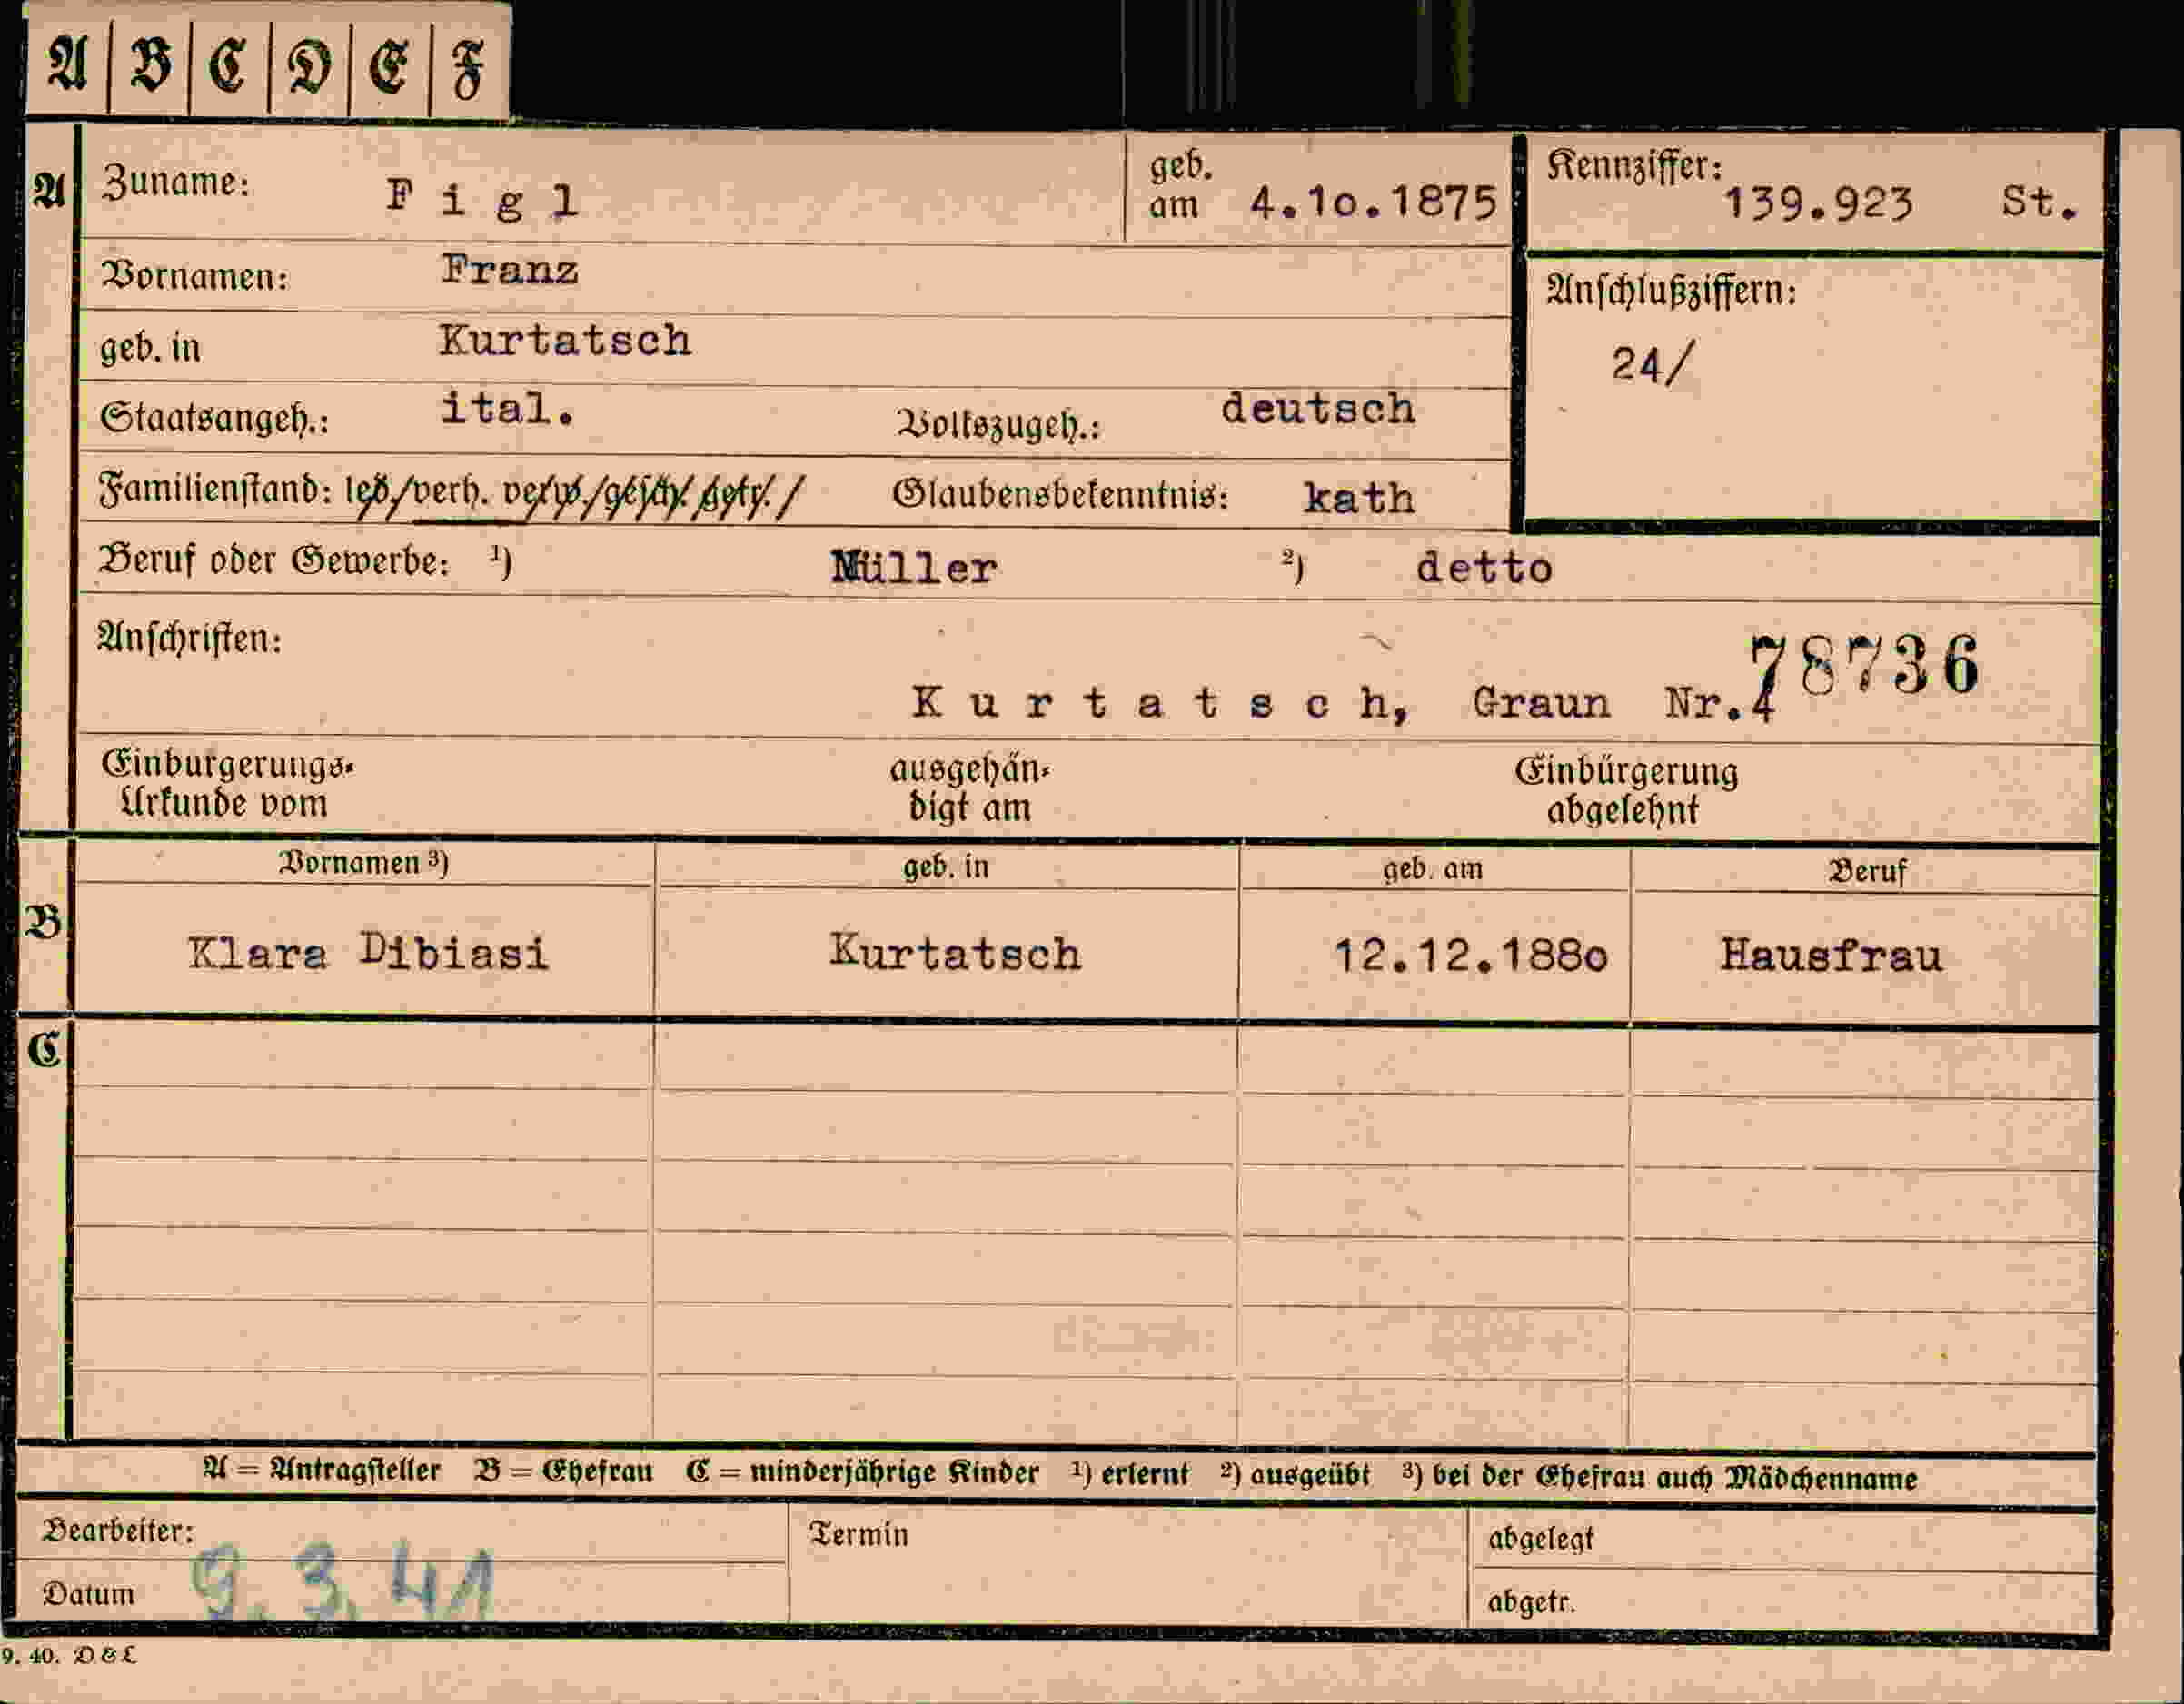 A | B | C | D | E | F
A Zuname: Figl geb. am 4.10.1875 Kennziffer: 139.923 St.
Vornamen: Franz
Anschlußziffern:
geb. in Kurtatsch
24/
Staatsangeh.: ital. Volkszugeh.: deutsch
Familienstand: led/verh. verw./gesch. getr./ Glaubensbekenntnis: kath
Beruf oder Gewerbe: ¹) Müller ²) detto
Anschriften:
78736
Kurtatsch, Graun Nr.4
Einburgerungs- ausgehän- Einbürgerung
Urkunde vom digt am abgelehnt
Vornamen ³) geb. in geb. am Beruf
B Klara Dibiasi Kurtatsch 12.12.1880 Hausfrau
C
A = Antragsteller B = Ehefrau C = minderjährige Kinder ¹) erlernt ²) ausgeübt ³) bei der Ehefrau auch Mädchenname
Bearbeiter: Termin abgelegt
Datum 9.3.41 abgetr.
9. 40. D & L